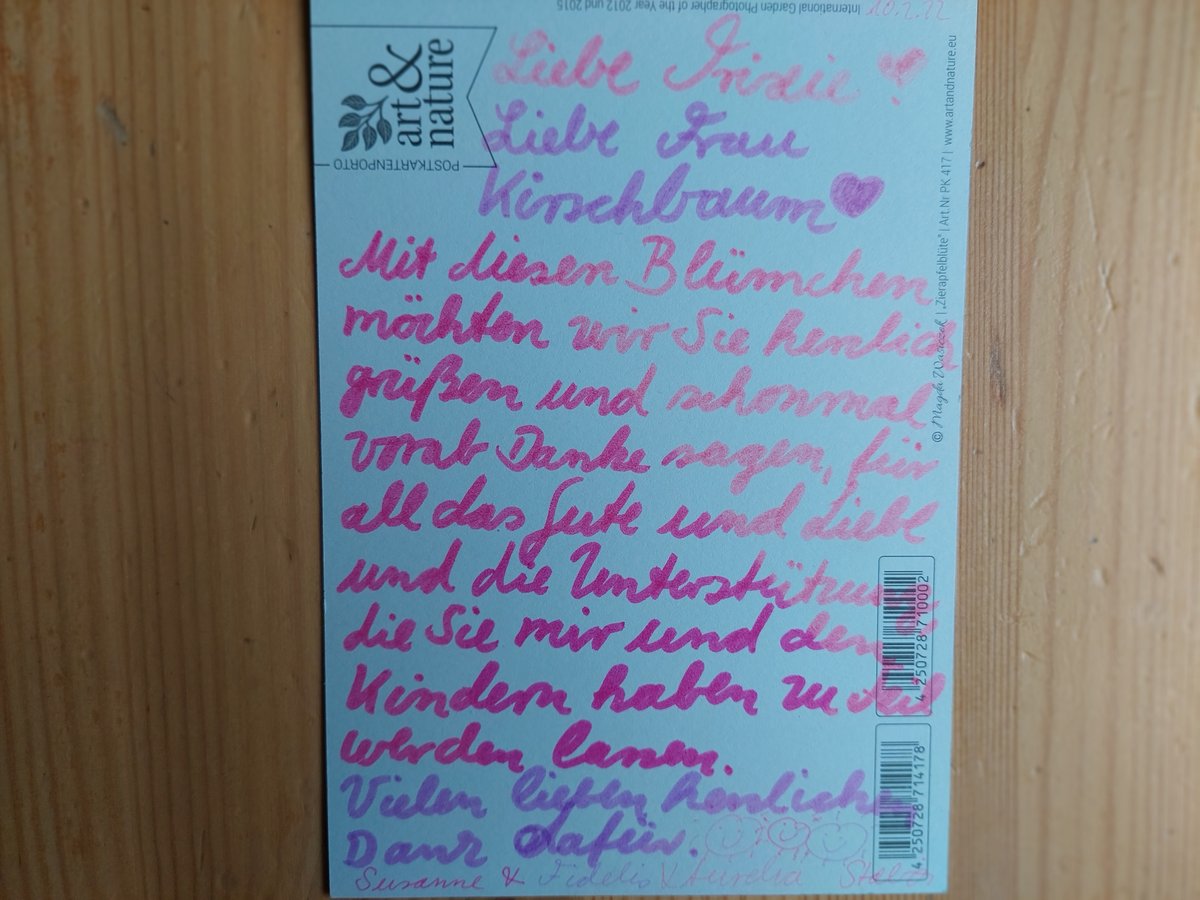 International Garden Photographer of the Year 2012 und 2015
10.2.22
art&
nature
POSTKARTENPORTO
Liebe Trixie
Liebe Frau
Kirschbaum
Mit diesen Blümchen
möchten wir Sie herzlich
grüßen und schonmal
vorab Danke sagen, für
all das Gute und Liebe
und die Unterstützung
die Sie mir und den
Kindern haben zu teil
werden lassen.
Vielen lieben herzlichen
Dank dafür.
Susanne & Fidelis & Aurelia
© Magda Wasiczek | „Zierapfelblüte“ | Art.Nr PK 417 | www.artandnature.eu
4 250728 710002
4 250728 714178